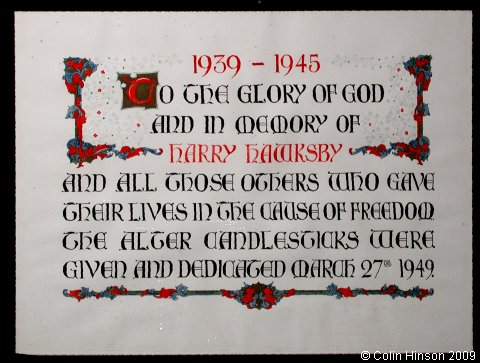 1939 - 1945
TO THE GLORY OF GOD
AND IN MEMORY OF
HARRY HAWKSBY
AND ALL THOSE OTHERS WHO GAVE
THEIR LIVES IN THE CAUSE OF FREEDOM
THE ALTER CANDLESTICKS WERE
GIVEN AND DEDICATED MARCH 27TH 1949.
© Colin Hinson 2009